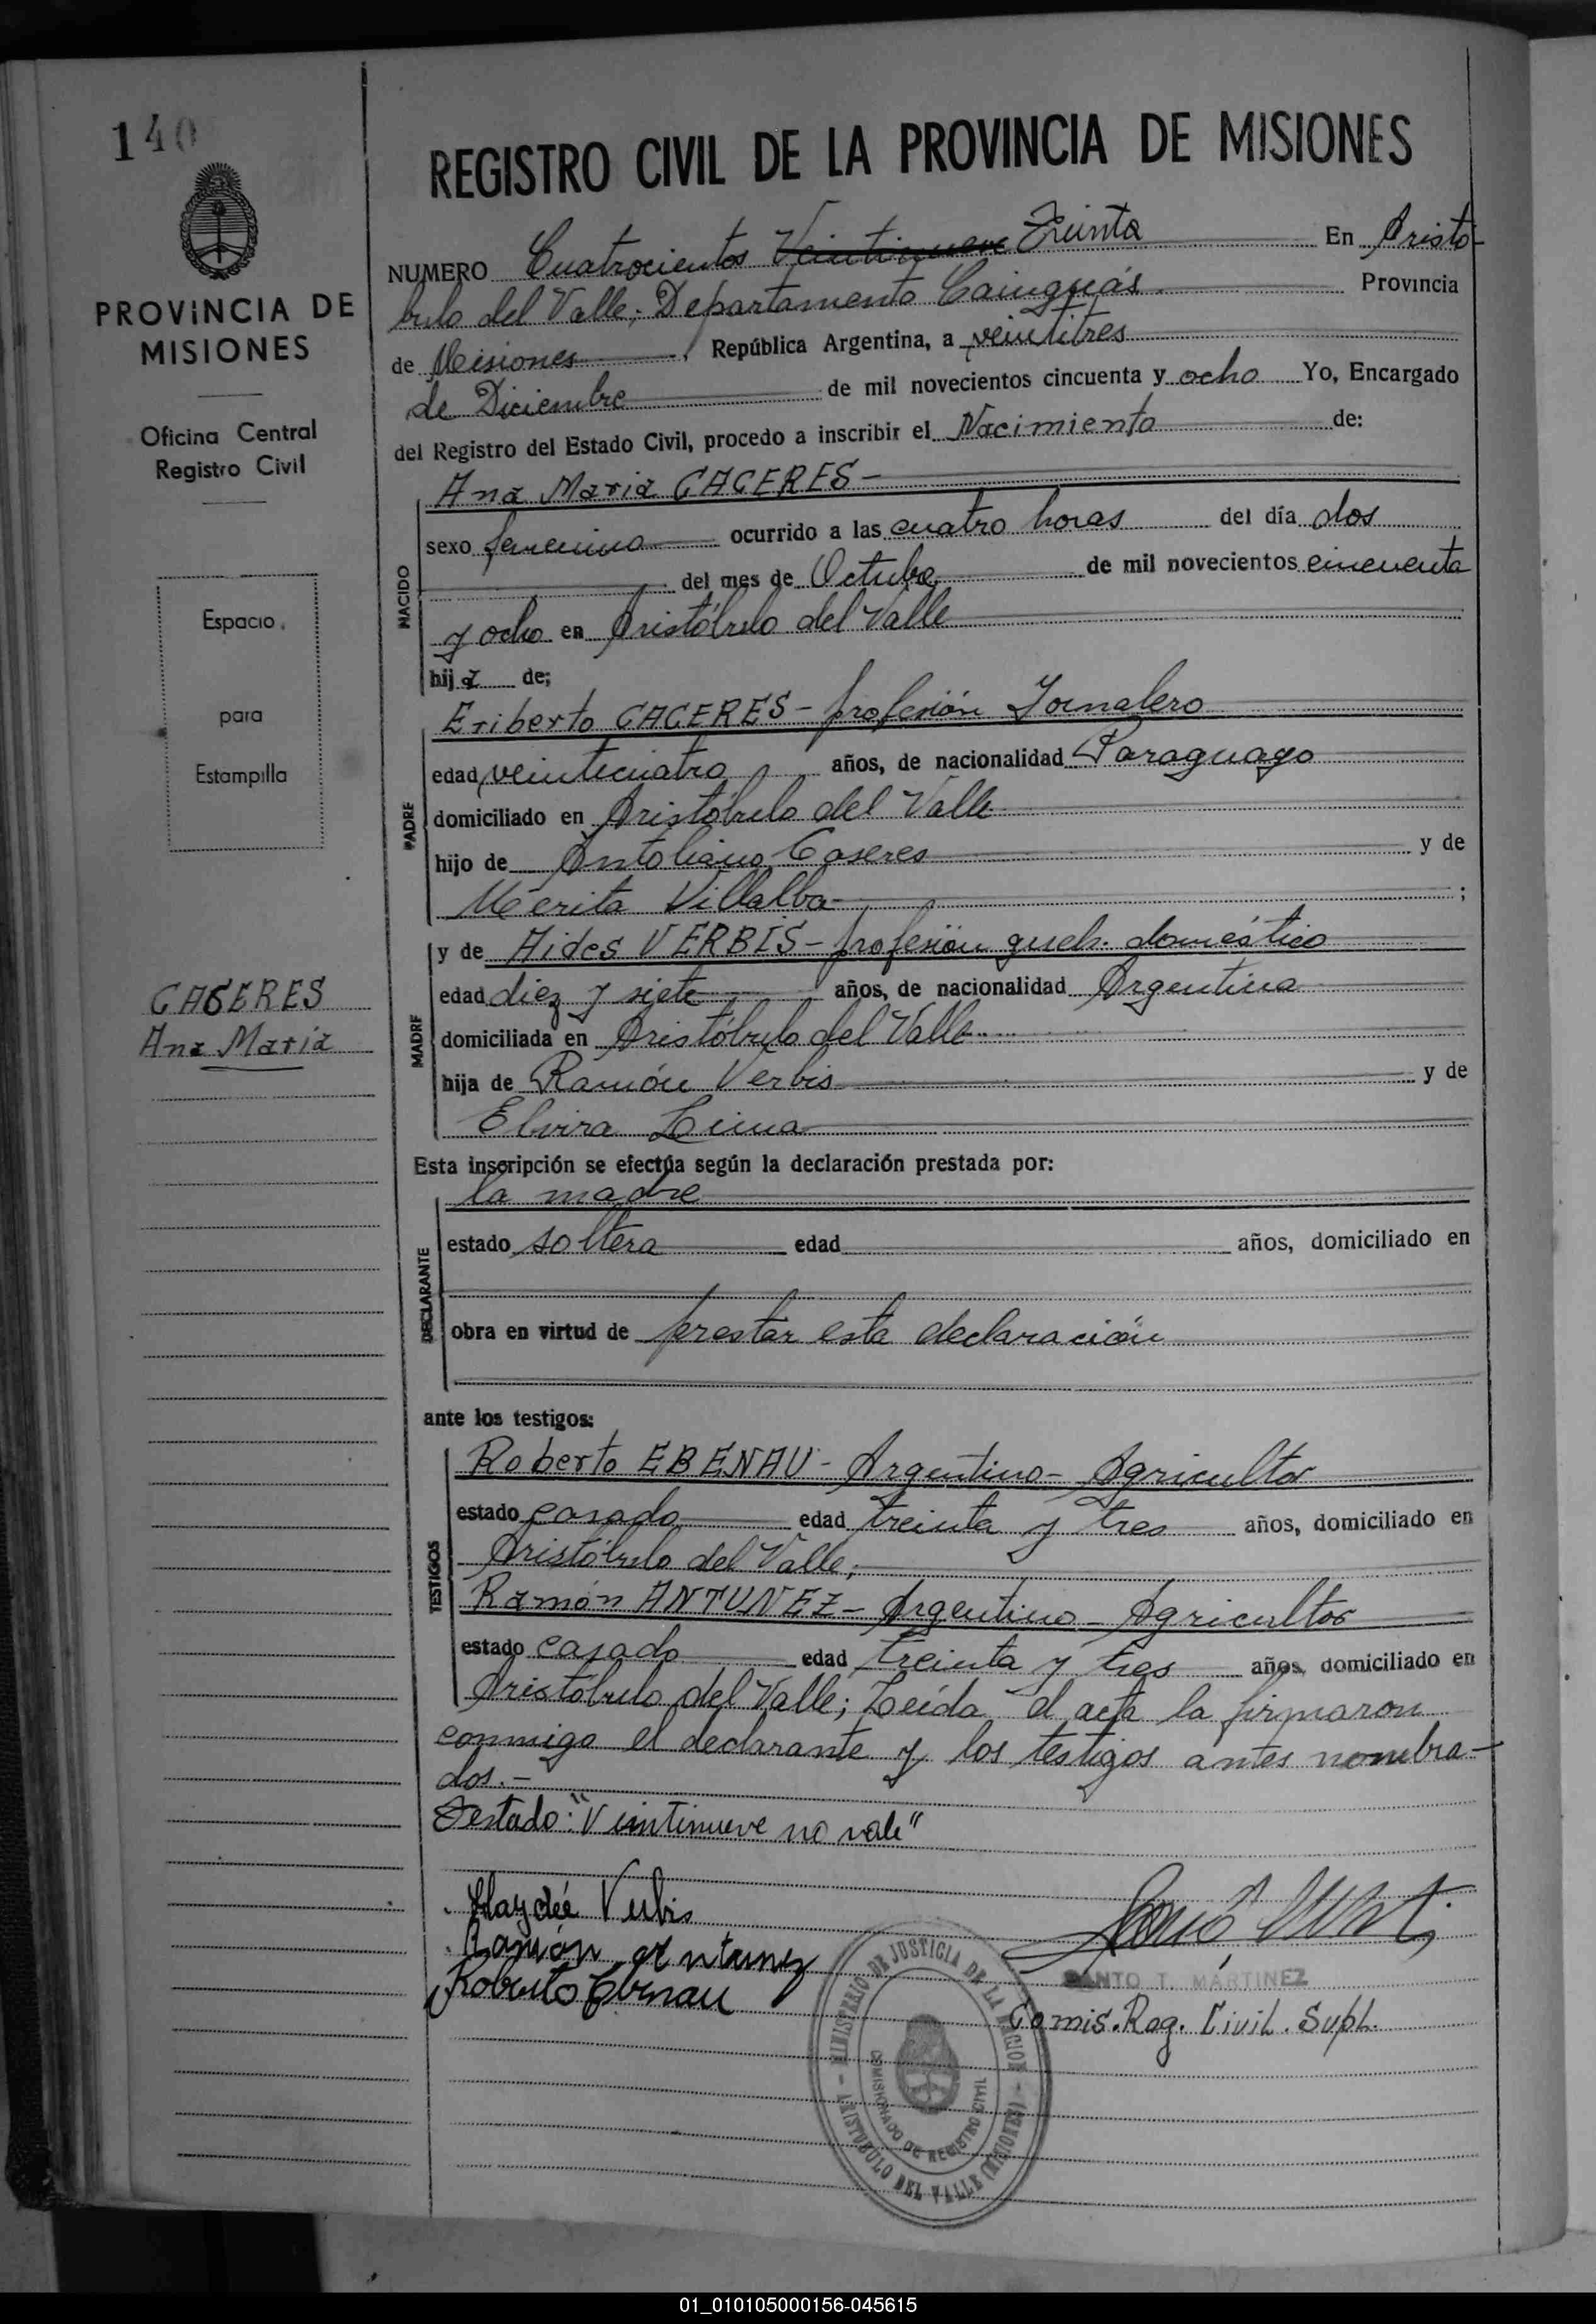 140
REGISTRO CIVIL DE LA PROVINCIA DE MISIONES
PROVINCIA DE
MISIONES
Oficina Central
Registro Civil
Espacio
para
Estampilla
CACERES
Ana Maria
NUMERO Cuatrocientos Veintinueve Treinta En Aristo-
bulo del Valle; Departamento Cainguás Provincia
de Misiones, República Argentina, a veintitres
de Diciembre de mil novecientos cincuenta y ocho Yo, Encargado
del Registro del Estado Civil, procedo a inscribir el Nacimiento de:
NACIDO
Ana Maria CACERES-
sexo femenino ocurrido a las cuatro horas del día dos
del mes de Octubre de mil novecientos cincuenta
y ocho en Aristóbulo del Valle
hija de;
PADRE
Eriberto CACERES- profesión Jornalero
edad veinticuatro años, de nacionalidad Paraguayo
domiciliado en Aristóbulo del Valle
hijo de Antoliano Caseres y de
Merita Villalba ;
MADRE
y de Aides VERBIS- profesión queh. doméstico
edad diez y siete años, de nacionalidad Argentina
domiciliada en Aristóbulo del Valle
hija de Ramón Verbis y de
Elvira Lima
Esta inscripción se efectúa según la declaración prestada por:
DECLARANTE
la madre
estado soltera edad años, domiciliado en
obra en virtud de prestar esta declaración
ante los testigos:
TESTIGOS
Roberto EBENAU- Argentino- Agricultor
estado casado edad treinta y tres años, domiciliado en
Aristóbulo del Valle;
Ramón ANTUNEZ- Argentino- Agricultor
estado casado edad treinta y tres años, domiciliado en
Aristobulo del Valle; Leída el acta la firmaron
conmigo el declarante y los testigos antes nombra-
dos.-
Testado: "Veintinueve no vale"
Haydée Verbis
Ramón Antunez
Roberto Ebenau
SANTO T. MARTINEZ
Comis. Reg. Civil. Supl.
MINISTERIO DE JUSTICIA DE LA NACION
COMISIONADO DE REGISTRO CIVIL
ARISTOBULO DEL VALLE (MISIONES)
01_010105000156-045615